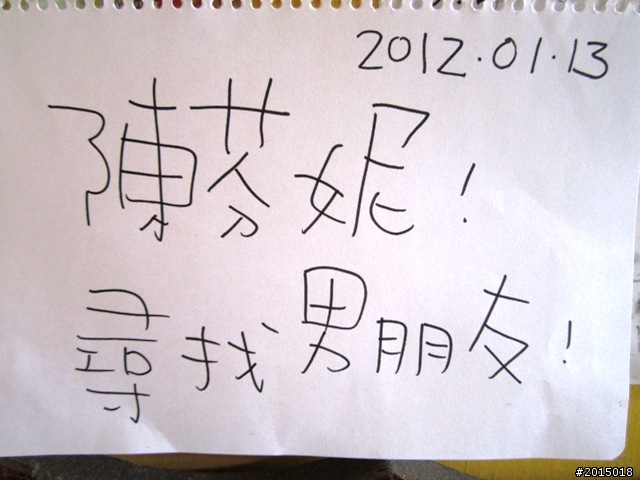 2012.01.13
陳芬妮!
尋找男朋友!
#2015018